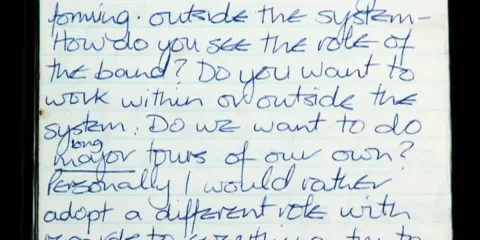 forming. outside the system-
How do you see the role of
the band? Do you want to
work within or outside the
system. Do we want to do
long
major tours of our own?
Personally I would rather
adopt a different role with
regards to everything try to